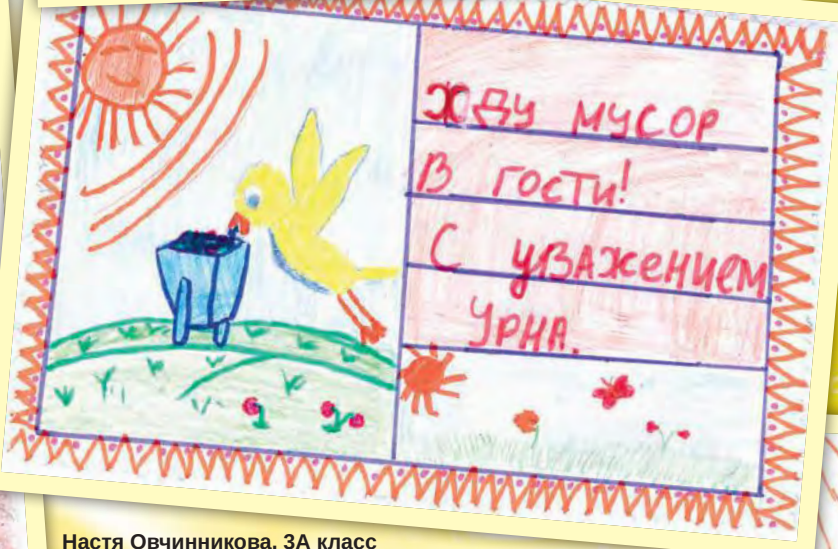 ЖДУ МУСОР
В ГОСТИ!
С УВАЖЕНИЕМ
УРНА.
Настя Овчинникова, 3А класс